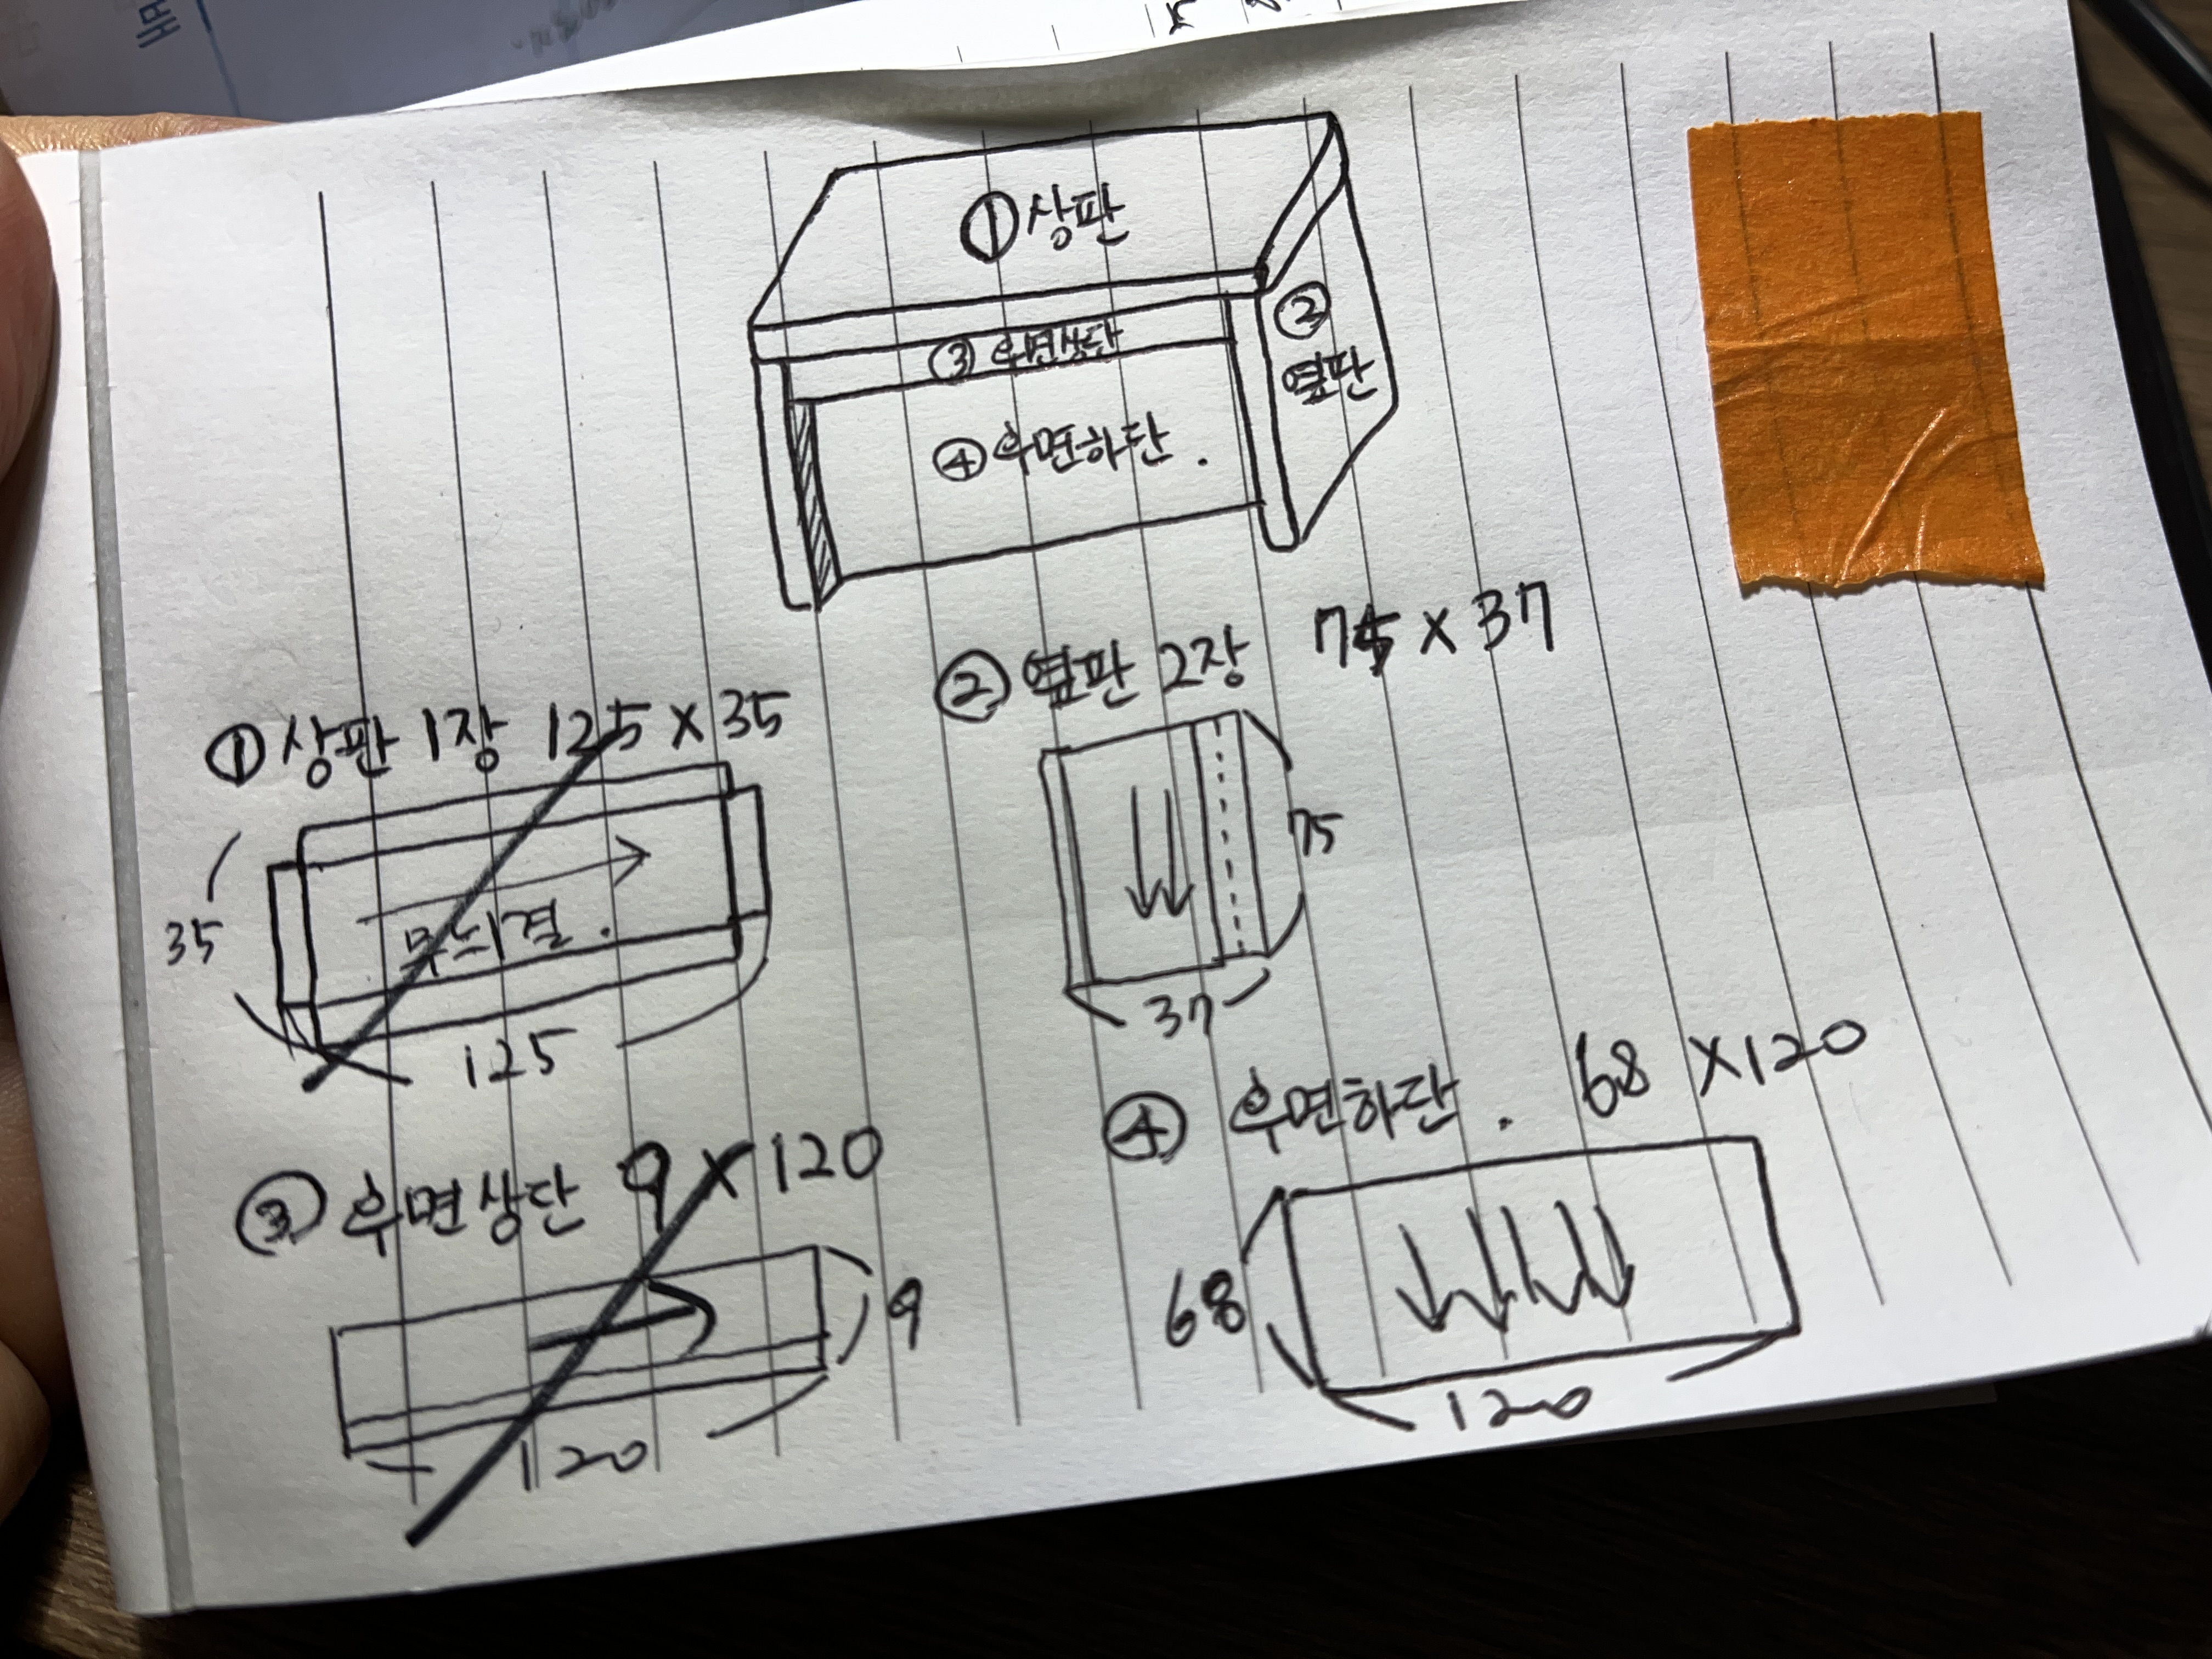 ① 상판
② 옆판
③ 후면상단
④ 후면하단.
① 상판 1장 125 × 35
무늬결.
35
125
② 옆판 2장 75 × 37
75
37
③ 후면상단 9 × 120
9
120
④ 후면하단. 68 × 120
68
120